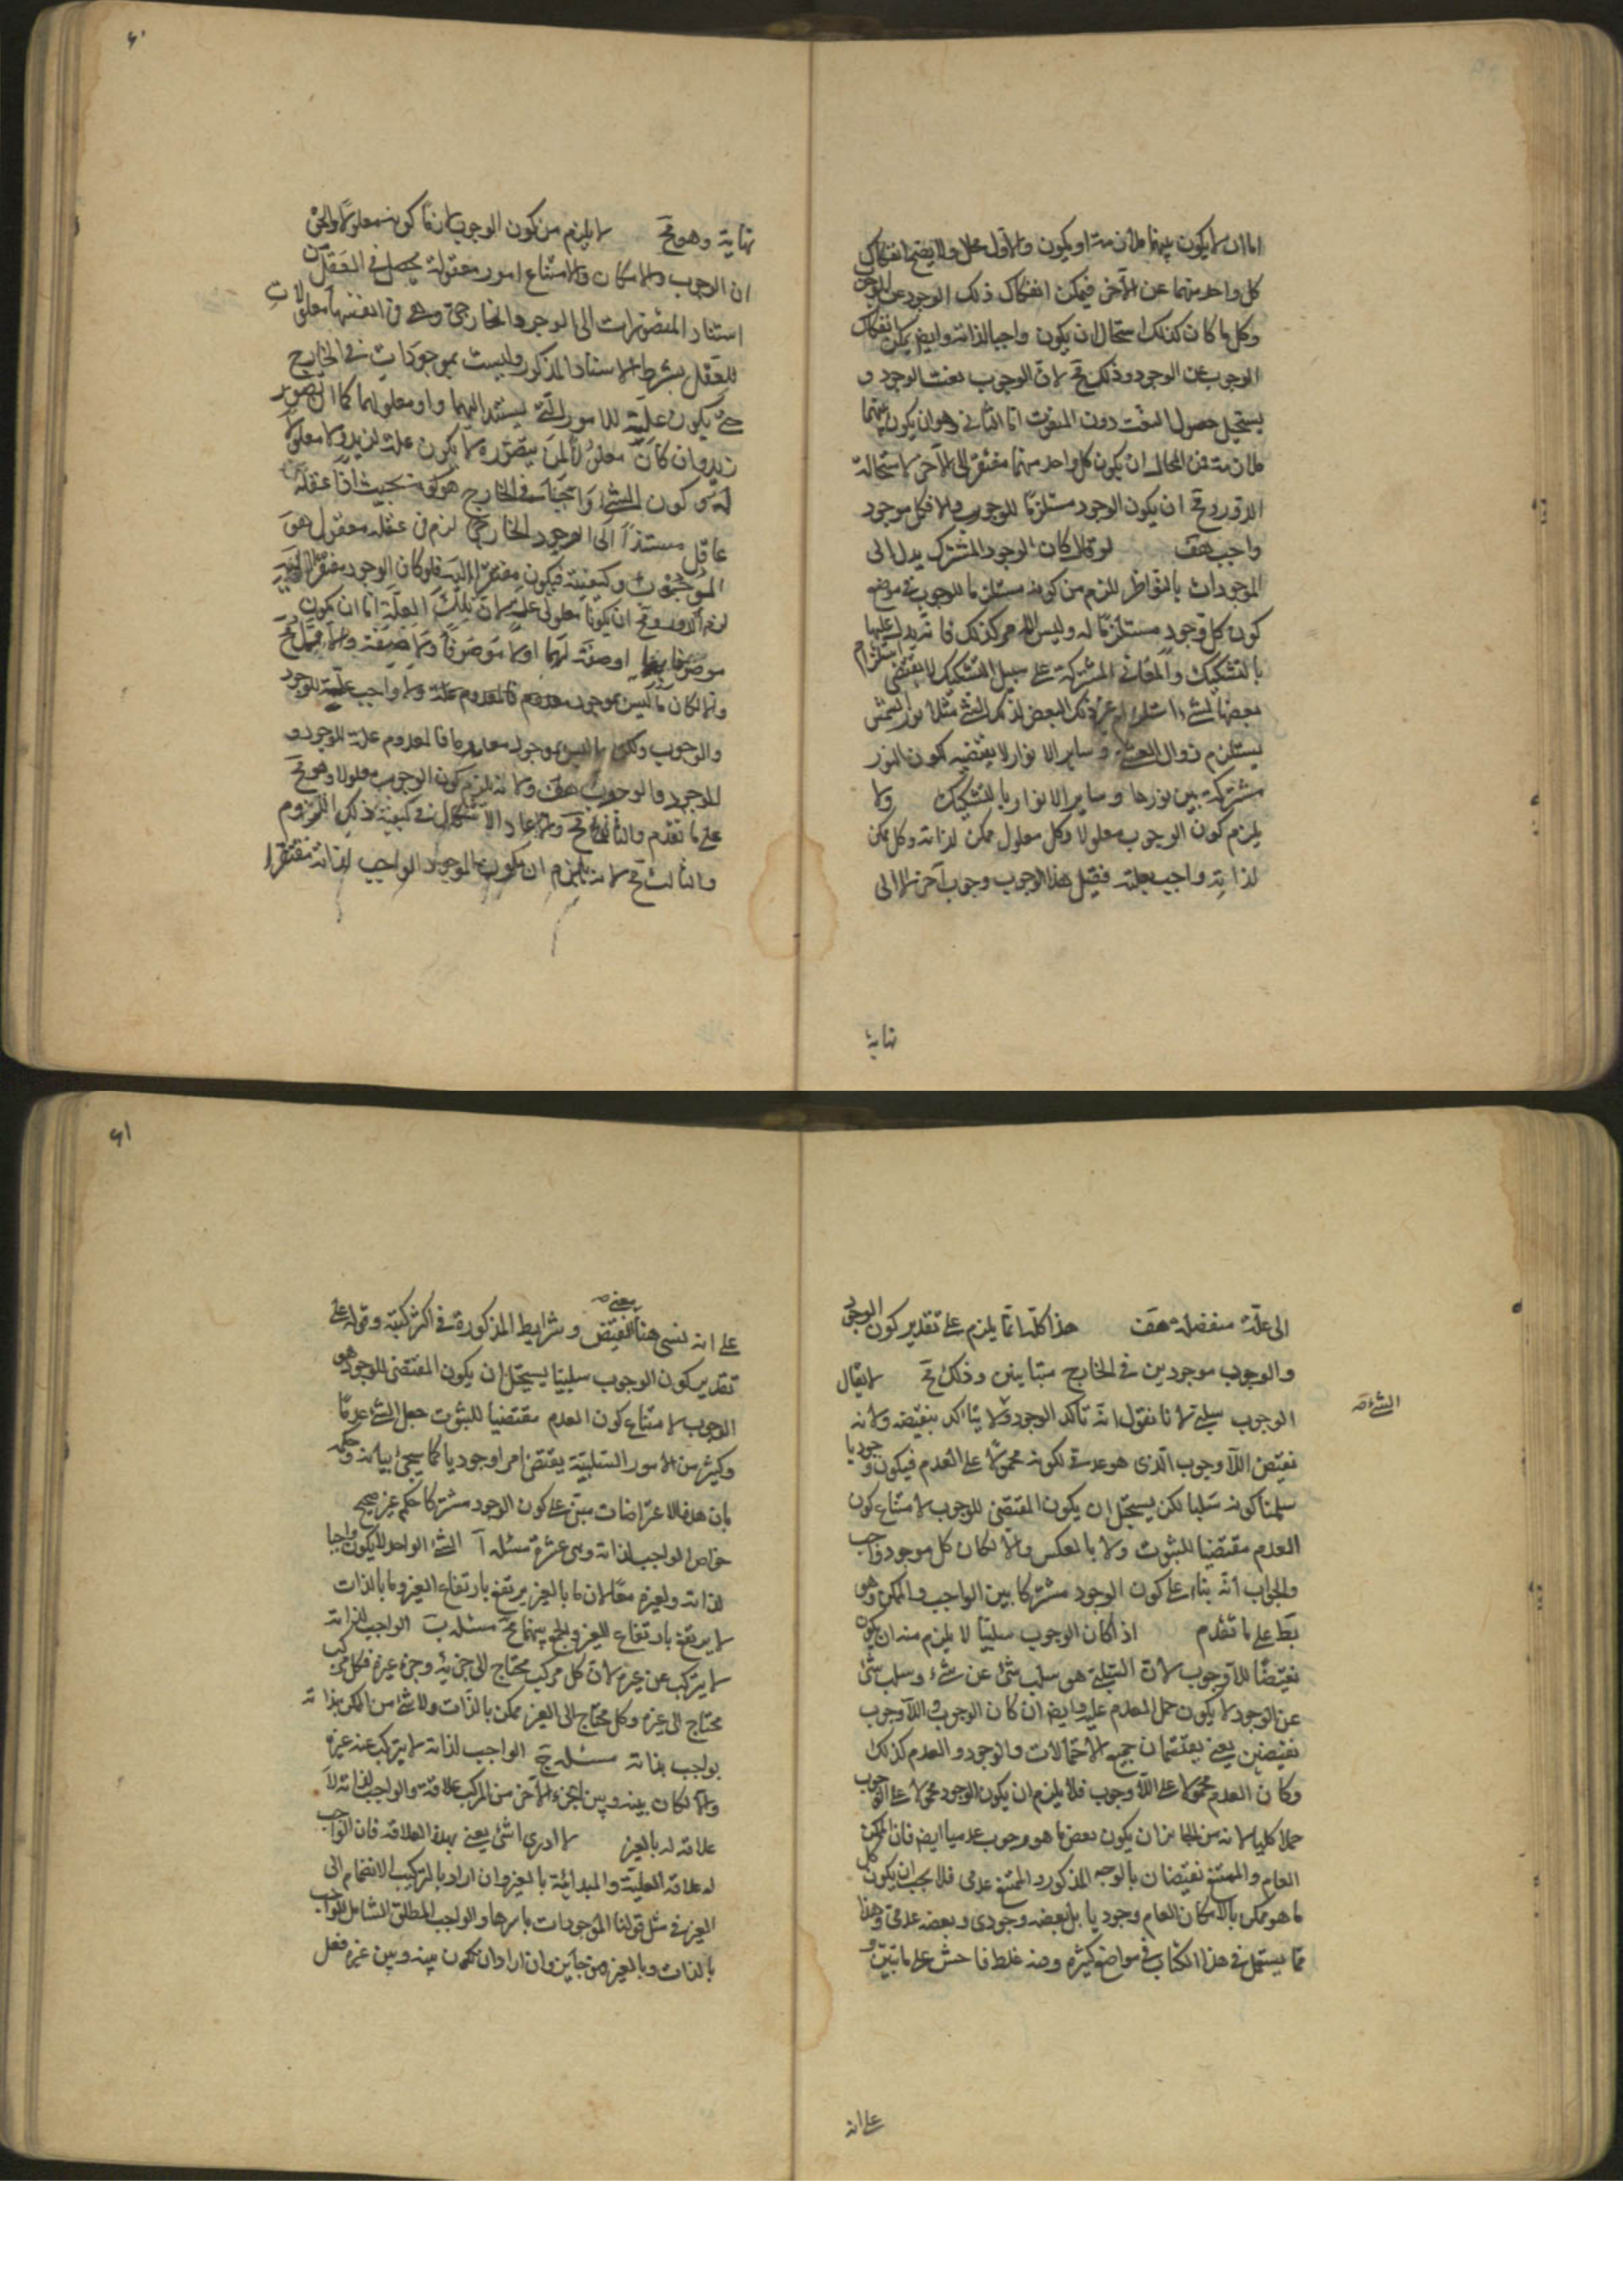 اما ان لا يكون بينهما ملازمة او يكون والاول محال والا يصح انفكاك
كل واحد منهما عن الآخر فيمكن انفكاك ذلك الوجود عن الوجوب
وكل ما كان كذلك استحال ان يكون واجبا لذاته وايضا يمكن انفكاك
الوجوب عن الوجود وذلك مح لان الوجوب نعت الوجود و
يستحيل حصول النعت دون المنعوت اما الثانى وهو ان يكون بينهما
ملازمة فمن المحال ان يكون كل واحد منهما مفتقرا الى الآخر لاستحالة
الدور ومح ان يكون الوجود مستلزما للوجوب والا فكل موجود
واجب هف لو قال كان الوجود المشترك يدل الى
الموجودات بالتواطى للزم من كونه مستلزما للوجوب فى موضع
كون كل وجود مستلزما له وليس الامر كذلك فانه يدل عليها
بالتشكيك والمعانى المشتركة على سبيل التشكيك لا يقتضى استلزام
بعضها لشىء استلزام غير ذلك البعض لذلك الشىء مثلا نور الشمس
يستلزم زوال العشى وساير الانوار لا يقتضيه لكون النور
مشتركة بين نورها وساير الانوار بالتشكيك ولا
يلزم كون الوجوب معلولا وكل معلول ممكن لذاته وكل ممكن
لذاته واجب بعلته فقبل هذا الوجوب وجوب آخر لا الى
نهاية
٦٠
نهاية وهو مح لا يلزم من كون الوجوب لازما كونه معلولا والحق
ان الوجوب والامكان والامتناع امور معقولة يحصل فى العقل من
استناد المتصورات الى الوجود الخارجى وهى فى انفسها معلولات
للعقل بشرط الاستناد المذكور وليست بموجودات فى الخارج
حتى يكون علة للامور التى يستند اليها او معلولا لها كما ان تصور
زيد وان كان معلولا لمن يتصوره لا يكون علة لزيد ولا معلولا
له و كون الشىء واجبا فى الخارج هو كونه بحيث اذا عقله
عاقل مستندا الى الوجود الخارجى لزم فى عقله معقول هو
الوجوب وكيفيته فيكون مفتقرا اليه فلو كان الوجود مفتقرا اليه
لزم الدور ومح ان يكونا معلولى علة لان تلك العلة اما ان يكون
موصوفا بهما او صفة لهما او لا موصوفا ولا صفة والاول مح
والا لكان ما ليس بموجود معدوم فالمعدوم علة ولا واجب علة للوجود
والوجوب ولكن ما ليس بموجود معدوم فالمعدوم علة للوجود و
للوجود والوجوب هف ولانه يلزم كون الوجوب معلولا وهو مح
على ما تقدم والثانى مح ولا عاد الاشكال فى كيفية ذلك اللزوم
والثالث مح لانه يلزم ان يكون الموجود الواجب لذاته مفتقرا
الى علة منفصلة هف هذا كله انما يلزم على تقدير كون الوجود
والوجوب موجودين فى الخارج متباينين وذلك مح لا يقال
الوجوب سلبى لانا نقول انه تأكد الوجود ولا يتأكد الشىء بنقيضه ولانه
نقيض اللاوجوب الذى هو عدمى لكونه محمولا على العدم فيكون وجوديا
سلمنا كونه سلبا لكن يستحيل ان يكون المقتضى للوجوب لامتناع كون
العدم مقتضيا للثبوت ولا بالعكس والا لكان كل موجود واجب
والجواب انه بناء على كون الوجود مشتركا بين الواجب والممكن وهو
بط على ما تقدم اذا كان الوجوب سلبيا لا يلزم منه ان يكون
نقيضا للاوجوب لان السلبى هو سلب شىء عن شىء وسلب شىء
عن الوجود لا يكون حمل العدم عليه وايضا ان كان الوجوب واللاوجوب
نقيضين يعنى يقتسمان جميع الاحتمالات والوجود والعدم كذلك
وكان العدم محمولا على اللاوجوب فلا يلزم ان يكون الوجود محمولا على الوجوب
حملا كليا لانه من الجائز ان يكون بعض ما هو وجوب عدميا ايضا فان الممكن
العام والممتنع نقيضان بالوجه المذكور والممتنع عدمى فلا يجب ان يكون كل
ما هو ممكن بالامكان العام وجوديا بل بعضه وجودى وبعضه عدمى وهذا
مما يستعمل فى هذا الكتاب فى مواضع كثيرة ومنه غلط فاحش على ما تبين و
على انه
٦١
على انه نسى هنا معنى النقيض وشرايط المذكورة فى اكثر كتبه وقوله على
تقدير كون الوجوب سلبيا يستحيل ان يكون المقتضى للوجود هو
الوجوب لامتناع كون العدم مقتضيا للثبوت جعل الشىء عدميا
وكثير من الامور السلبية يقتضى امرا وجوديا كما سيجئ بيانه وحكمه
بان هذه الاعتراضات مبنى على كون الوجود مشتركا حكم غير صحيح
خواص الواجب لذاته وهى عشرة مسئله آ الشىء الواحد لا يكون واجبا
لذاته ولغيره معا لان ما بالغير يرتفع بارتفاع الغير وما بالذات
لا يرتفع بارتفاع الغير والجمع بينهما مح مسئله ب الواجب لذاته
لا يتركب عن غيره لان كل مركب محتاج الى جزئه وجزءه غيره فكل مركب
محتاج الى غيره وكل محتاج الى الغير ممكن بالذات ولا شىء من الممكن بذاته
بواجب بذاته مسئله ج الواجب لذاته لا يتركب عنه غيره
والا لكان بينه وبين الجزء الآخر من المركب علاقة والواجب لذاته لا
علاقة له بالغير لا ادرى اى شىء يعنى بهذه العلاقة فان الواجب
له علاقة العلية والمبدائية بالغير وان اراد بالتركيب الانضمام الى
الغير فى مثل قولنا الموجودات باسرها والواجب المطلق الشامل للواجب
بالذات وبالغير فهو جايز وان اراد ان يكون بينه وبين غيره فعل